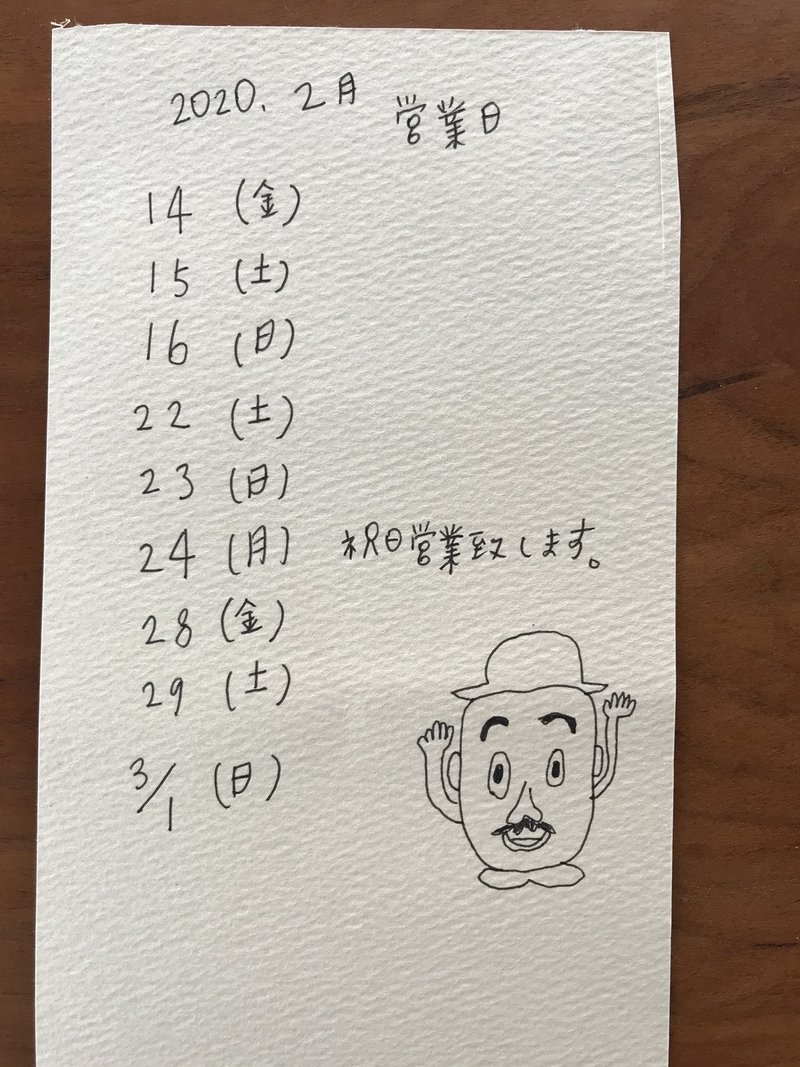 2020. 2月 営業日
14 (金)
15 (土)
16 (日)
22 (土)
23 (日)
24 (月) 祝日営業致します。
28 (金)
29 (土)
3/1 (日)